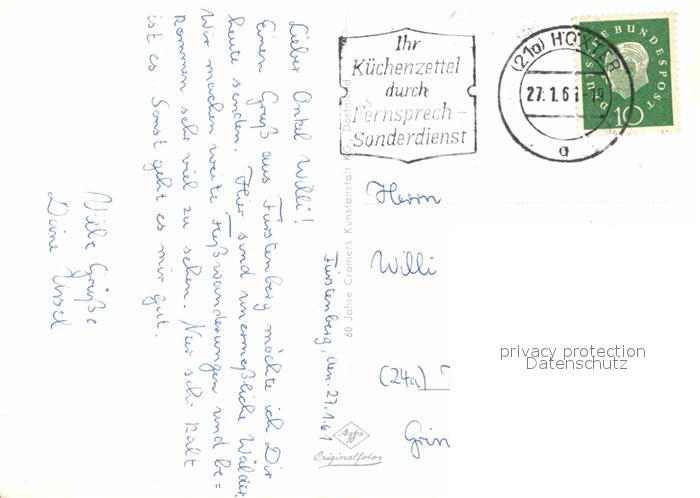 Fürstenberg, den 27.1.61
Lieber Onkel Willi!
Einen Gruß aus Fürstenberg möchte ich Dir
heute senden. Hier sind unermeßliche Wälder.
Wir machen weite Fußwanderungen und be=
kommen sehr viel zu sehen. Nur sch. kalt
ist es. Sonst geht es mir gut.
Viele Grüße
Deine Ursel
60 Jahre Cramers Kunstanstalt KG., Dortmund
Ihr
Küchenzettel
durch
Fernsprech-
Sonderdienst
(21a) HÖXTER
27.1.61-19
a
DEUTSCHE BUNDESPOST
10
Herrn
Willi
(24a)
privacy protection
Datenschutz
Agfa
Originalfoto